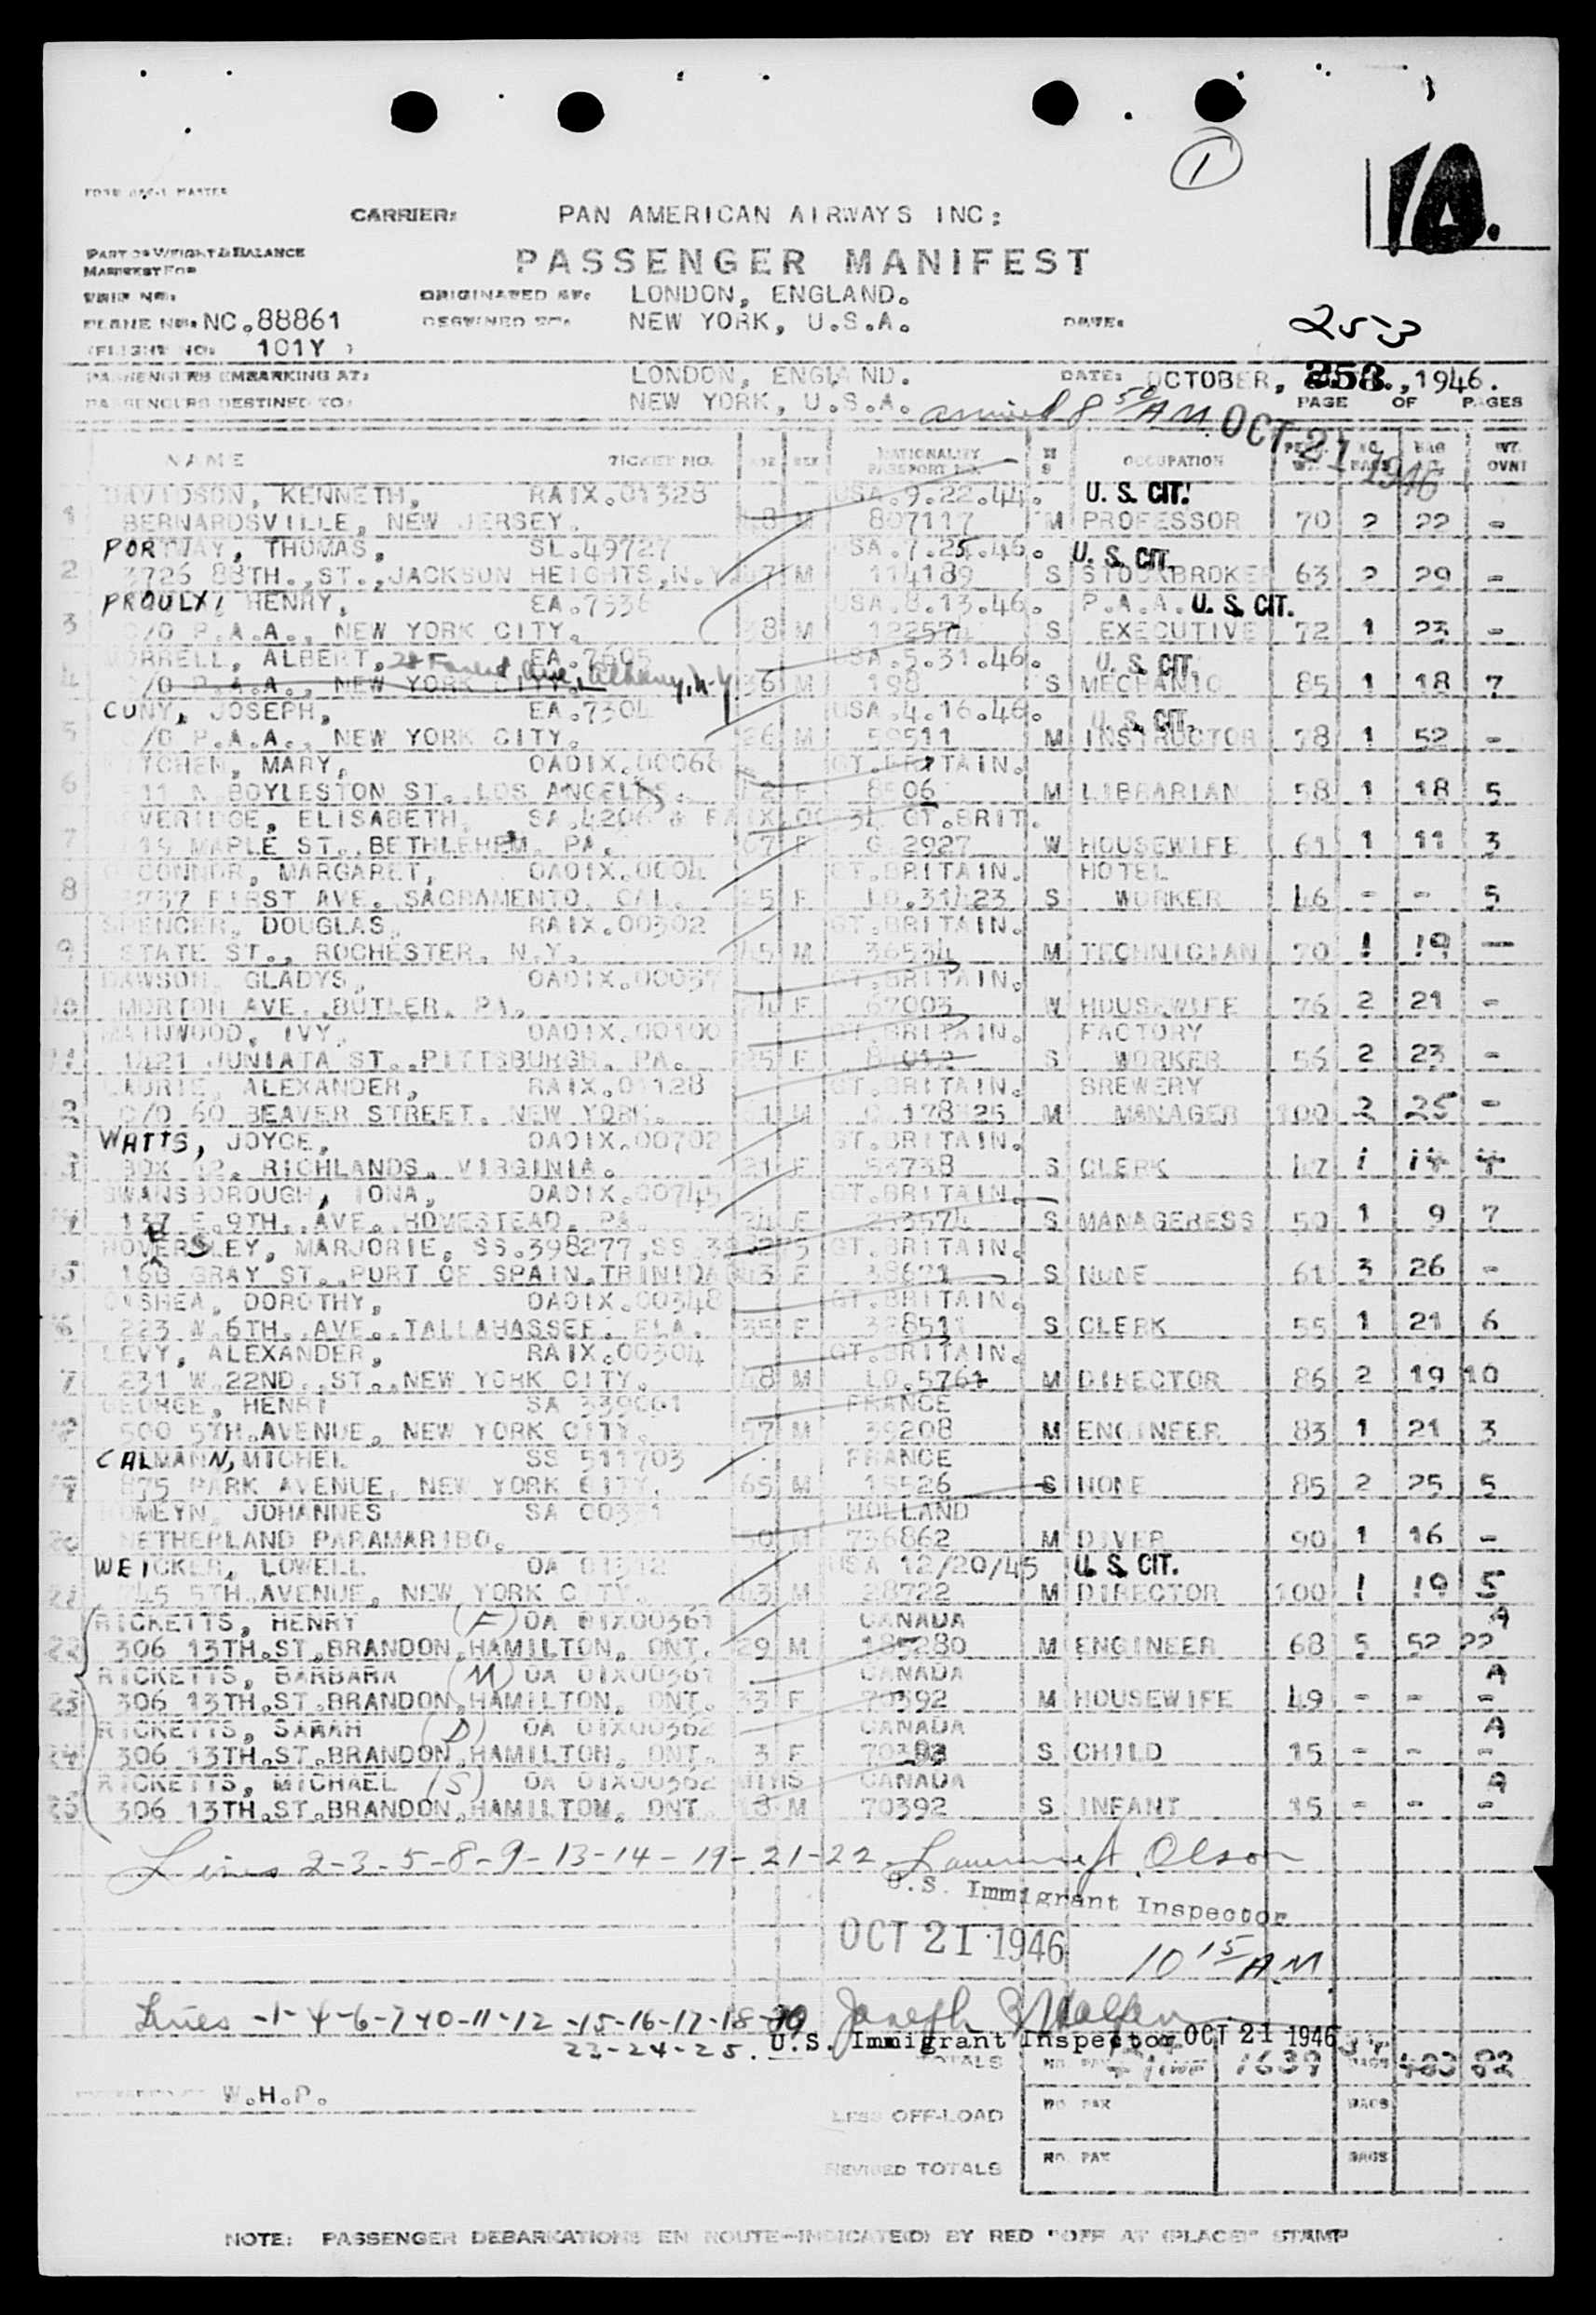 1
10.
CARRIER: PAN AMERICAN AIRWAYS INC:
PART OF WEIGHT & BALANCE
MANIFEST FOR
PASSENGER MANIFEST
TRIP NO:
ORIGINATED AT: LONDON, ENGLAND.
PLANE NO: NC.88861 DESTINED TO: NEW YORK, U.S.A. DATE:
(FLIGHT NO: 101Y )
253
PASSENGERS EMBARKING AT: LONDON, ENGLAND. DATE: OCTOBER, 1946.
PASSENGERS DESTINED TO: NEW YORK, U.S.A. PAGE OF PAGES
arrived 8 50 AM OCT 21 1946
NAME TICKET NO. AGE SEX NATIONALITY PASSPORT NO. M S OCCUPATION NO. BAGS WT. OVNT
DAVIDSON, KENNETH, RAIX.01328 USA.9.22.44. U. S. CIT.
1 BERNARDSVILLE, NEW JERSEY. M 807117 M PROFESSOR 70 2 22 -
PORTWAY, THOMAS, SL.49727 SA.7.25.46. U. S. CIT.
2 3726 88TH.,ST.,JACKSON HEIGHTS,N.Y 47 M 114189 S STOCKBROKER 63 2 29 -
PROULX, HENRY, EA.7536 USA.8.13.46. P.A.A. U. S. CIT.
3 C/O P.A.A., NEW YORK CITY. 38 M 122574 S EXECUTIVE 72 1 23 -
MORRELL, ALBERT, EA.7605 USA.5.31.46. U. S. CIT.
4 C/O P.A.A., NEW YORK CITY. Ave, Albany, N-Y 36 M 198 S MECHANIC 85 1 18 7
CUNY, JOSEPH, EA.7304 USA.4.16.46. U. S. CIT.
5 /O P.A.A., NEW YORK CITY. 26 M 59511 M INSTRUCTOR 78 1 52 -
MARY, OAOIX.00068 GT.BRITAIN.
6 11 N BOYLESTON ST. LOS ANGELES. F 8506 M LIBRARIAN 58 1 18 5
BEVERIDGE, ELISABETH, GT.BRIT.
7 MAPLE ST. BETHLEHEM, PA. 67 F G 2927 W HOUSEWIFE 61 1 11 3
O CONNOR, MARGARET, OAOIX.0004 GT.BRITAIN. HOTEL
8 3737 FIRST AVE. SACRAMENTO, CAL. 25 F LO.31423 S WORKER 46 - - 5
SPENCER, DOUGLAS, RAIX.00302 GT.BRITAIN.
9 STATE ST., ROCHESTER, N.Y. 45 M 36534 M TECHNICIAN 70 1 19 -
DAWSON, GLADYS, OAOIX.00037 GT.BRITAIN.
10 MORTON AVE. BUTLER, PA. F 67003 W HOUSEWIFE 76 2 21 -
MAINWOOD, IVY, OAOIX.00100 GT.BRITAIN. FACTORY
11 1421 JUNIATA ST.,PITTSBURGH, PA. 25 F S WORKER 56 2 23 -
LAURIE, ALEXANDER, RAIX.01128 GT.BRITAIN. BREWERY
C/O 60 BEAVER STREET, NEW YORK. M M MANAGER 100 2 25 -
WATTS, JOYCE, OAOIX.00702 GT.BRITAIN.
BOX 12, RICHLANDS, VIRGINIA. 21 F 53738 S CLERK 47 1 14 4
SWANSBOROUGH, IONA, OAOIX.00745 GT.BRITAIN.
137 E.9TH.,AVE. HOMESTEAD, PA. 24 F 253574 S MANAGERESS 50 1 9 7
HOVERSLEY, MARJORIE, SS.398277 GT.BRITAIN.
16B GRAY ST.,PORT OF SPAIN,TRINIDA 43 F 38671 S NONE 61 3 26 -
OASHEA, DOROTHY, OAOIX.00348 GT.BRITAIN.
223 W.6TH.,AVE.,TALLAHASSEE, FLA. 35 F 328511 S CLERK 55 1 21 6
LEVY, ALEXANDER, RAIX.00304 GT.BRITAIN.
231 W.22ND.,ST.,NEW YORK CITY. 48 M LO.5761 M DIRECTOR 86 2 19 10
GEORGE, HENRI SA 339061 FRANCE
500 5TH.AVENUE, NEW YORK CITY. 57 M 39208 M ENGINEER 83 1 21 3
CALMANN, MICHEL SS 511703 FRANCE
875 PARK AVENUE, NEW YORK CITY. 65 M 18526 S NONE 85 2 25 5
ROMEYN, JOHANNES SA 00331 HOLLAND
20 NETHERLAND PARAMARIBO. 50 M 736862 M DIVER 90 1 16 -
WEICKER, LOWELL USA 12/20/45 U. S. CIT.
745 5TH.AVENUE, NEW YORK CITY. 43 M 28722 M DIRECTOR 100 1 19 5
RICKETTS, HENRY (F) OA 01X00361 CANADA A
22 306 13TH.ST.BRANDON,HAMILTON, ONT. 29 M 185280 M ENGINEER 68 5 52 22
RICKETTS, BARBARA (M) OA 01X00361 CANADA A
23 306 13TH.ST.BRANDON,HAMILTON, ONT. 33 F 70392 M HOUSEWIFE 49 - - -
RICKETTS, SARAH (D) OA 01X00362 CANADA A
24 306 13TH.ST.BRANDON,HAMILTON, ONT. 3 F S CHILD 15 - - -
RICKETTS, MICHAEL (S) OA 01X00362 MTHS CANADA A
25 306 13TH.ST.BRANDON,HAMILTON, ONT. 18 M 70392 S INFANT 15 - - -
Lines 2-3-5-8-9-13-14-19-21-22 Olson
U.S. Immigrant Inspector
OCT 21 1946 10 15 AM
Lines -1-4-6-7-10-11-12-15-16-17-18-20 Joseph
23-24-25. U.S. Immigrant Inspector OCT 21 1946
TOTALS NO. PAX 1639 BAGS 483 82
W.H.P.
LESS OFF-LOAD NO. PAX BAGS
REVISED TOTALS NO. PAX BAGS
NOTE: PASSENGER DEBARKATIONS EN ROUTE-INDICATE(D) BY RED "OFF AT (PLACE)" STAMP